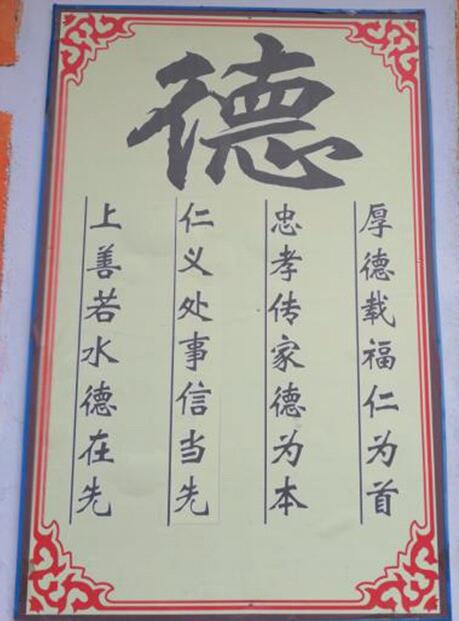 德
厚德载福仁为首
忠孝传家德为本
仁义处事信当先
上善若水德在先